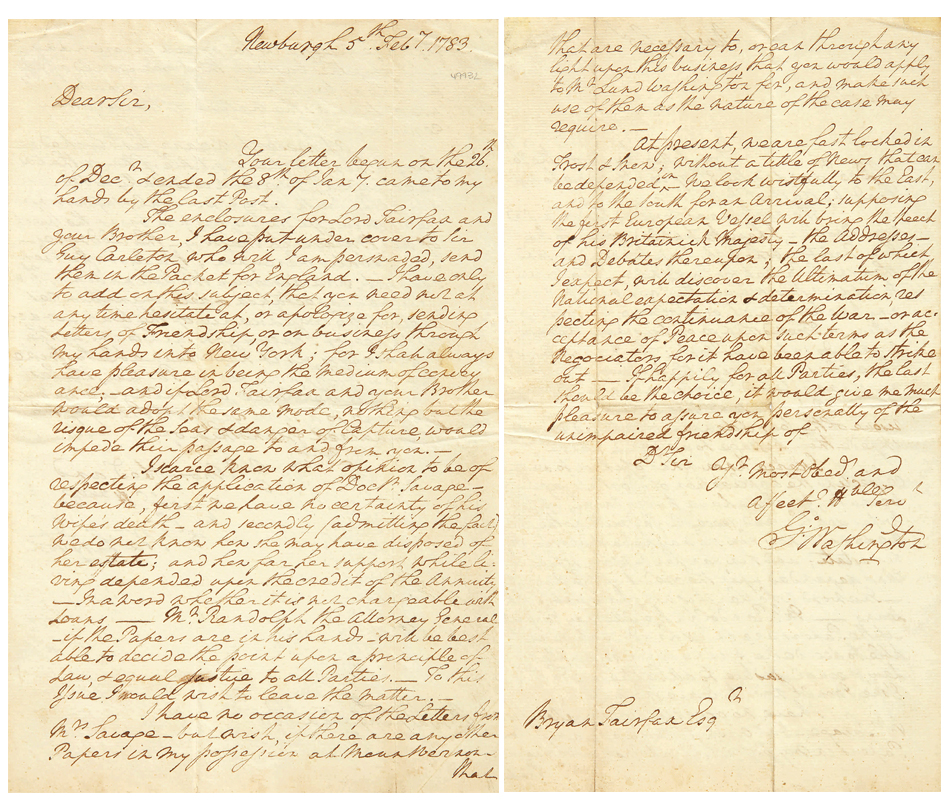 Newburgh 5th Feby. 1783
4993L
Dear Sir,
Your letter begun on the 26th
of Decr. & ended the 8th of Jany. came to my
hands by the last Post.
The enclosures for Lord Fairfax and
your Brother, I have put under cover to Sir
Guy Carleton who will I am persuaded, send
them in the Packet for England. — I have only
to add on this subject, that you need not at
any time hesitate at, or apologize for, sending
Letters of Friendship or on business through
my hands into New York; for I shall always
have pleasure in being the medium of convey
ance. — and if Lord Fairfax and your Brother
would adopt the same mode, nothing but the
risque of the Seas & danger of Capture, would
impede their passage to and from you. —
I scarce know what opinion to be of
respecting the application of Doctr. Savage —
because, first we have no certainty of his
Wifes death — and secondly (admitting the fact)
we do not know how she may have disposed of
her estate; and how far her support while li-
ving depended upon the credit of the Annuity
— In a word whether it is not chargeable with
Loans — Mr. Randolph the Attorney General
— if the Papers are in his hands — will be best
able to decide the point upon a principle of
Law, & equal justice to all Parties. — To this
Issue I would wish to leave the matter. —
I have no occasion of the Letters from
Mrs. Savage — but wish if there are any other
Papers in my possession at Mount Vernon —
that
that are necessary to, or can through any
light upon this business, that you would apply
to Mr. Lund Washington for, and make such
use of them as the nature of the case may
require. —
At present, we are fast locked in
Frost & Snow; without a tittle of News that can
be depended on — We look wistfully to the East,
and to the South for an Arrival; supposing
the first European Vessel will bring the speech
of his Britainick Majesty — the Addresses —
and Debates thereupon; the last of which
I expect, will discover the Ultimatum of the
National expectation & determination, res
pecting the continuance of the War — or ac-
ceptance of Peace upon such terms as the
Negociators for it have been able to strike
out — If happily, for all Parties, the last
should be the choice, it would give me much
pleasure to assure you personally of the
unimpaired friendship of
Dr Sir Yr. most Obedt. and
Affecte. Hble Servt
Go: Washington
Bryan Fairfax Esqr